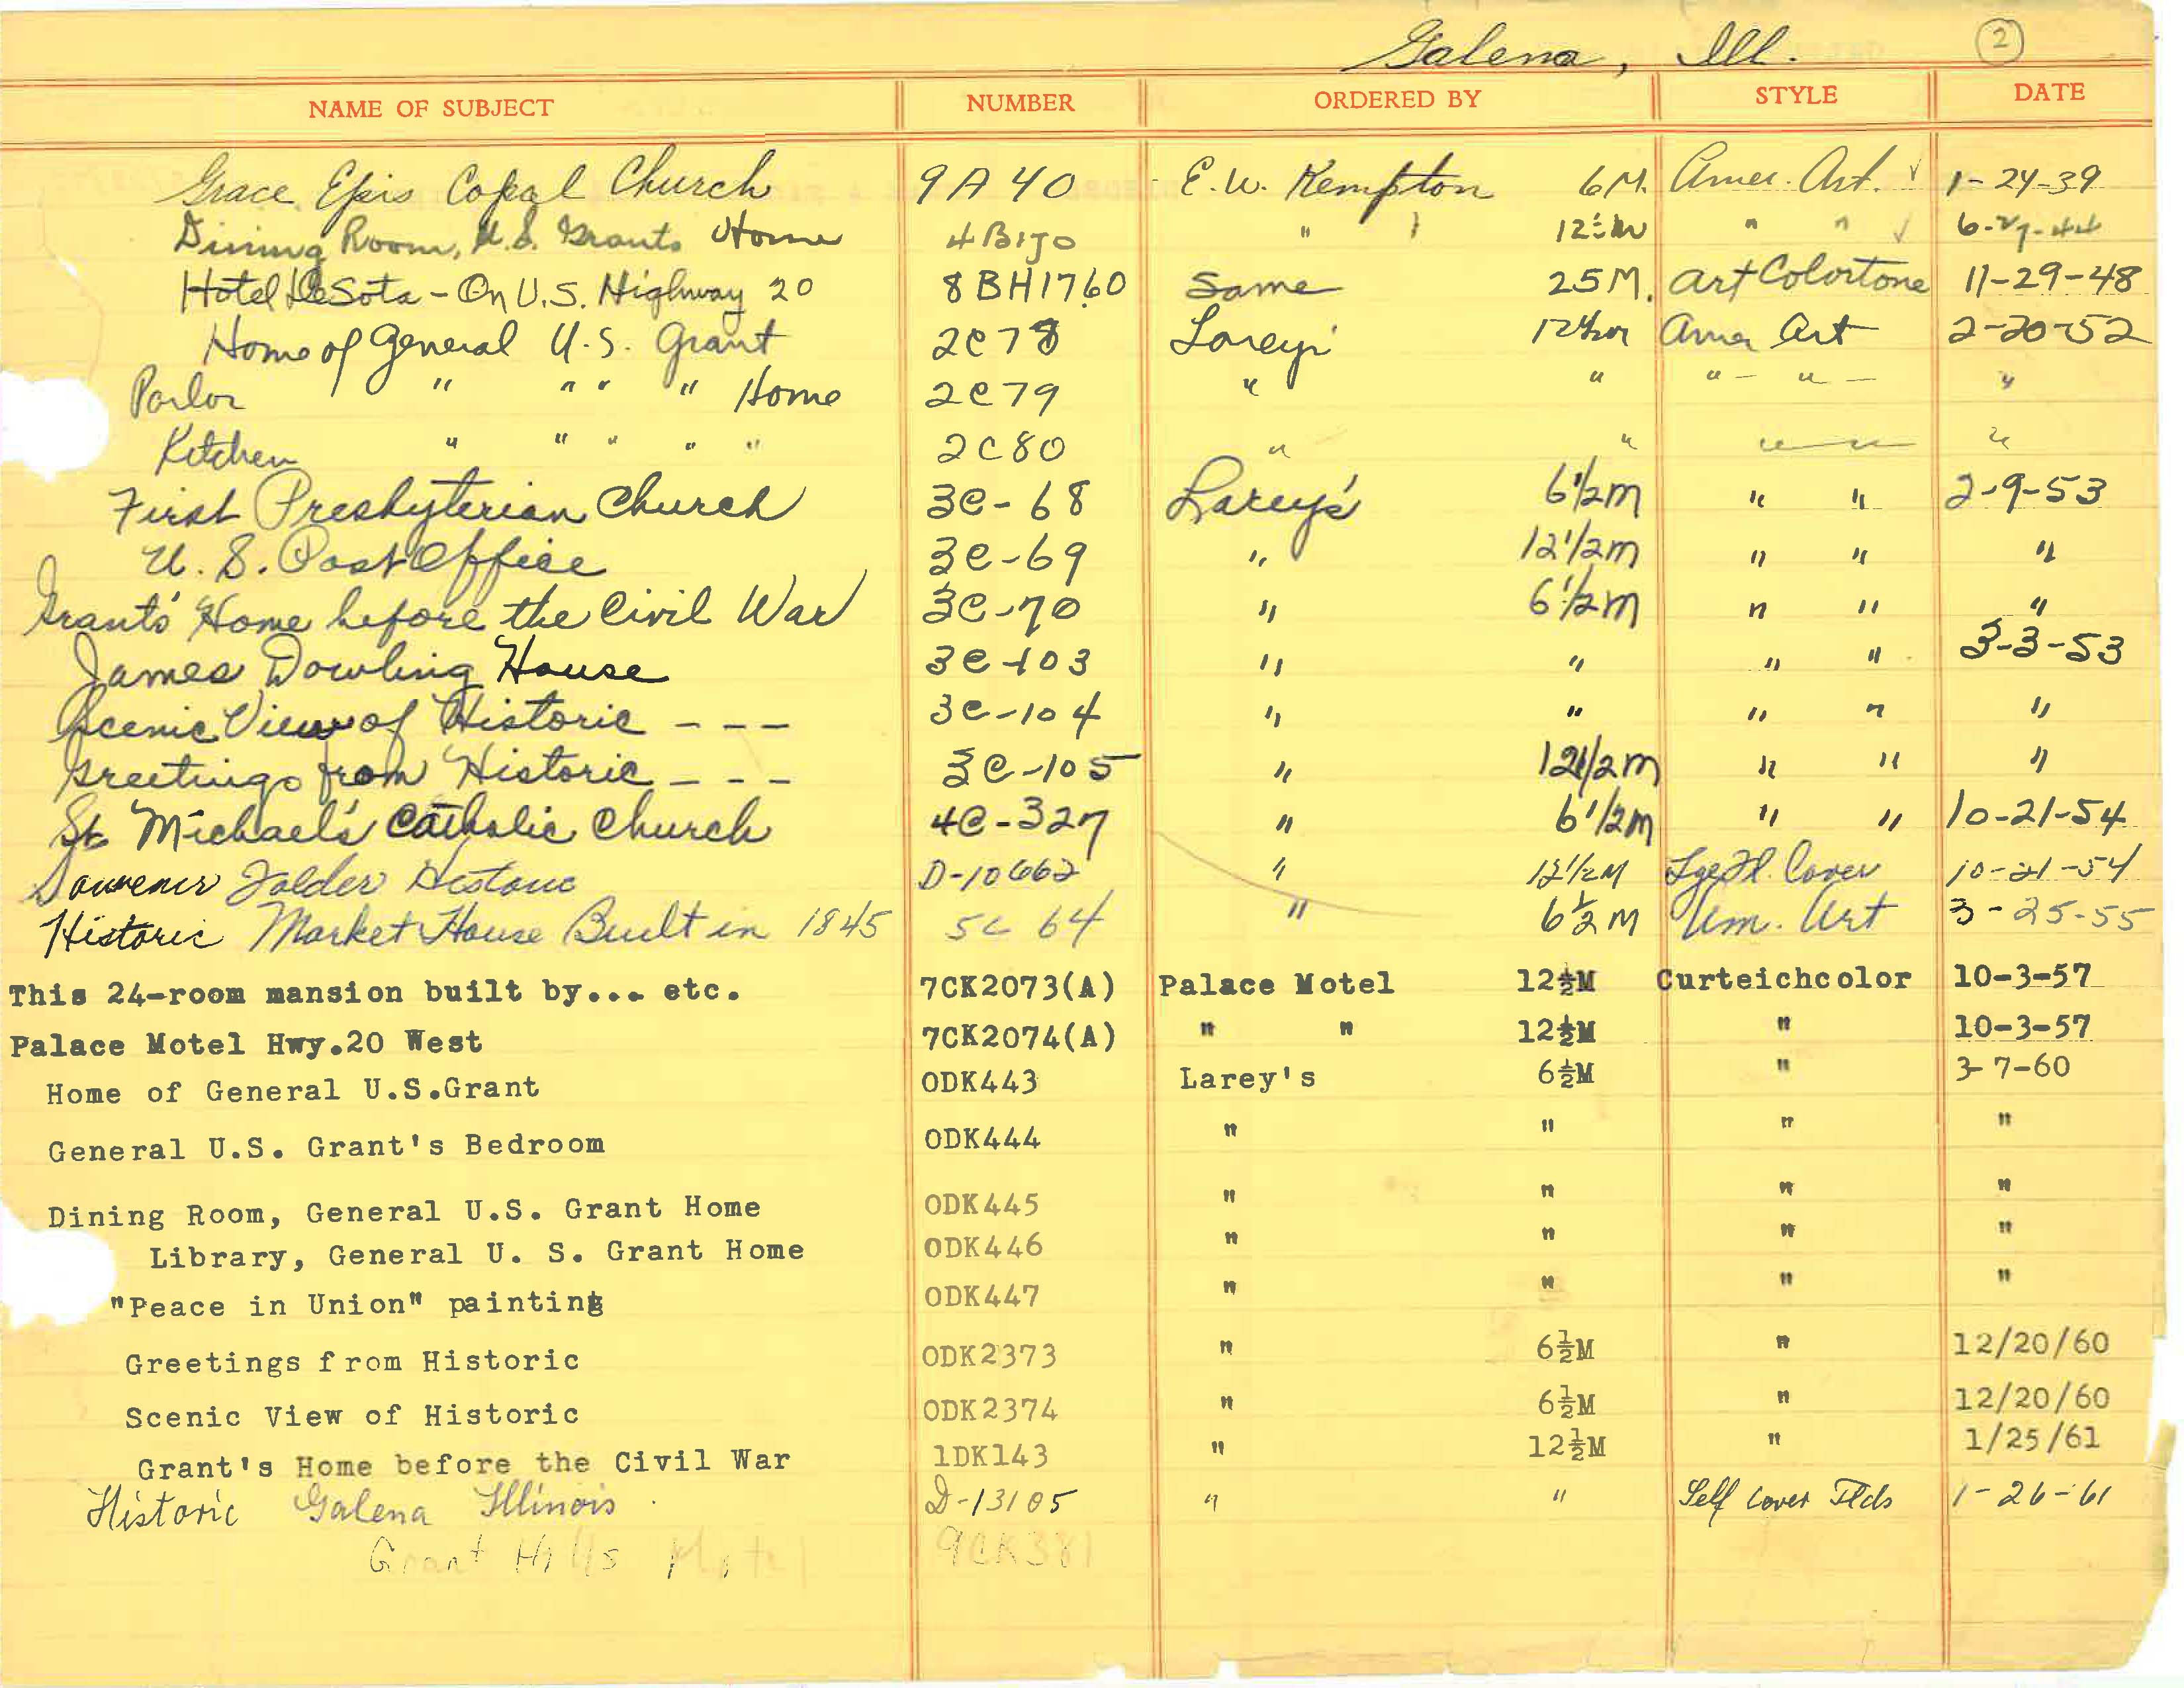 Galena, Ill. 2
NAME OF SUBJECT NUMBER ORDERED BY STYLE DATE
Grace Epis Copal Church 9A40 E.W. Kempton 6M. Amer. Art. ✓ 1-24-39
Dining Room, U.S. Grants Home 4B150 " " 12½M " " ✓ 6-29-44
Hotel DeSota - On U.S. Highway 20 8BH1760 Same 25M. Art Colortone 11-29-48
Home of General U.S. Grant 2C78 Lareys' 12½M Amer Art 2-20-52
Parlor " " " " Home 2C79 " " " - " - "
Kitchen " " " " " 2C80 " " " " "
First Presbyterian Church 3C-68 Larey's 6½M " " 2-9-53
U.S. Post Office 3C-69 " 12½M " " "
Grant's Home before the Civil War 3C-70 " 6½M " " "
James Dowling House 3C-103 " " " " 3-3-53
Scenic View of Historic - - - 3C-104 " " " " "
Greetings from Historic - - - 3C-105 " 12½M " " "
St. Michael's Catholic Church 4C-327 " 6½M " " 10-21-54
Souvenir Folder Historic D-10662 " 12½M Lge Fl. Cover 10-21-54
Historic Market House Built in 1845 5C 64 " 6½M Am. Art 3-25-55
This 24-room mansion built by... etc. 7CK2073(A) Palace Motel 12½M Curteichcolor 10-3-57
Palace Motel Hwy.20 West 7CK2074(A) " " 12½M " 10-3-57
Home of General U.S.Grant ODK443 Larey's 6½M " 3-7-60
General U.S. Grant's Bedroom ODK444 " " " "
Dining Room, General U.S. Grant Home ODK445 " " " "
Library, General U. S. Grant Home ODK446 " " " "
"Peace in Union" painting ODK447 " " " "
Greetings from Historic ODK2373 " 6½M " 12/20/60
Scenic View of Historic ODK2374 " 6½M " 12/20/60
Grant's Home before the Civil War 1DK143 " 12½M " 1/25/61
Historic Galena Illinois D-13105 " " Self Cover Flds 1-26-61
Grant Hills Motel 9CK381